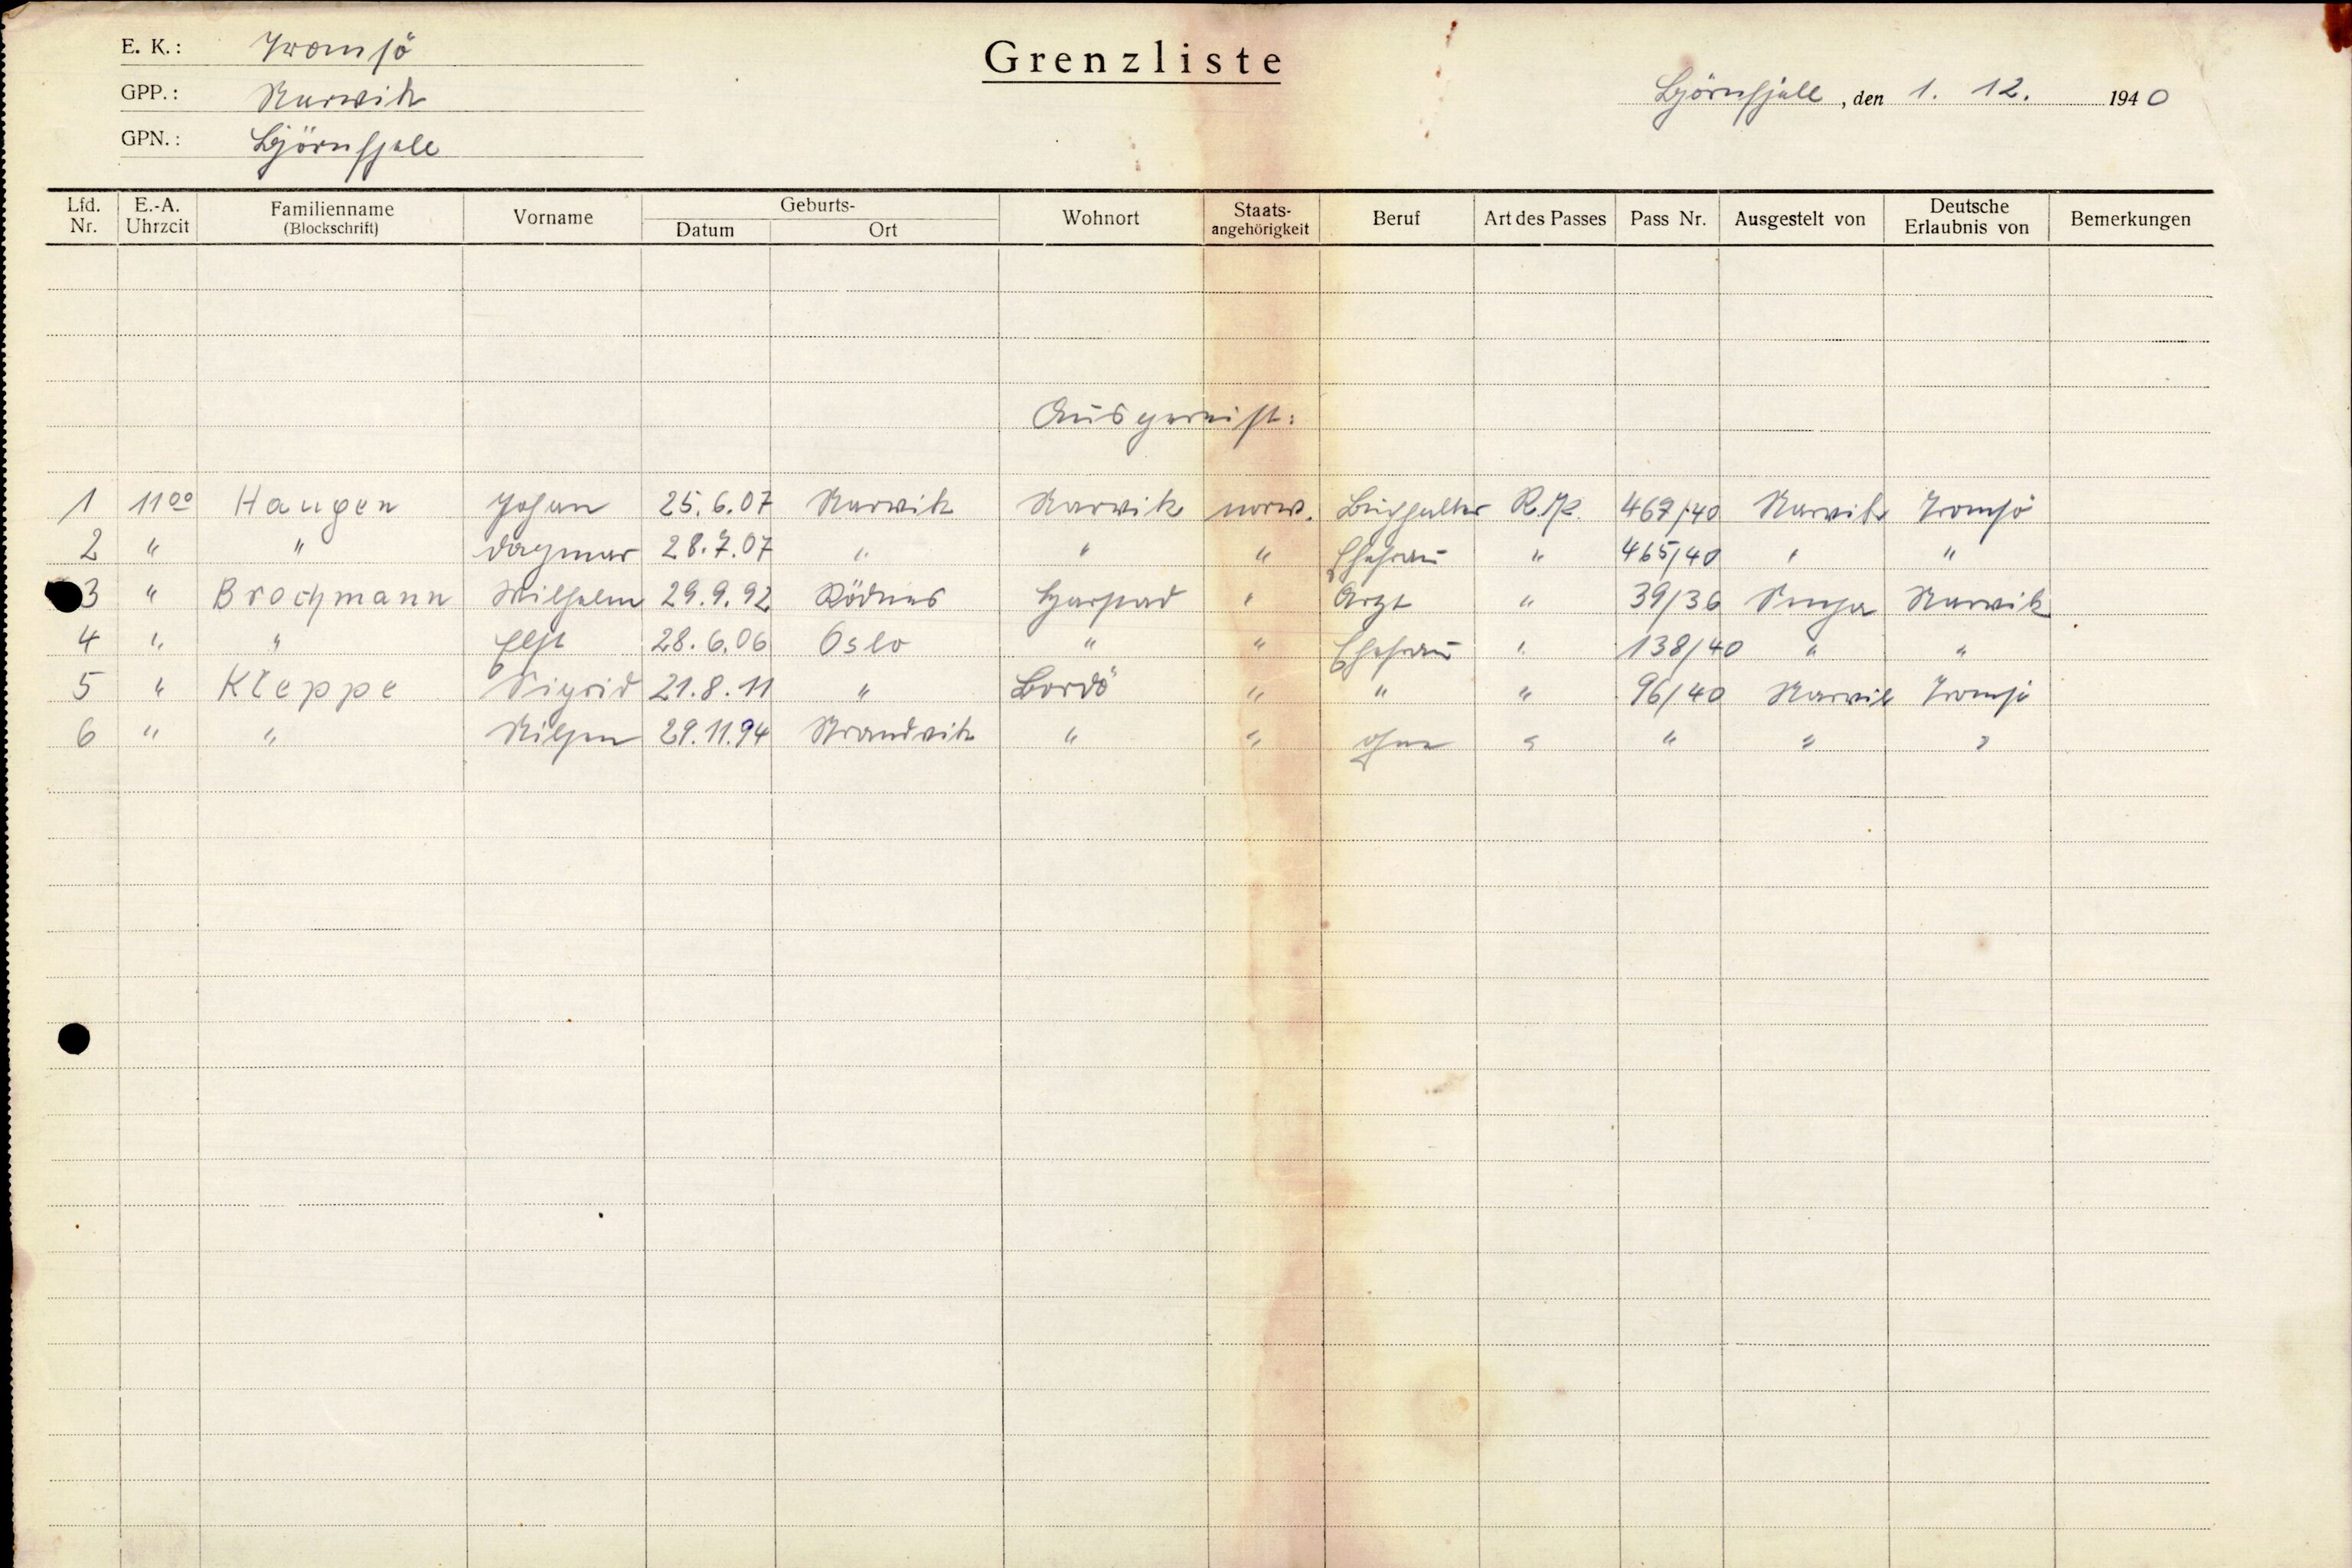 E. K.: Tromsö
GPP.: Narwik
GPN.: Björnfjell
Grenzliste
Björnfjell, den 1. 12. 1940
Lfd. Nr. | E.-A. Uhrzeit | Familienname (Blockschrift) | Vorname | Geburts- Datum | Ort | Wohnort | Staats-angehörigkeit | Beruf | Art des Passes | Pass Nr. | Ausgestelt von | Deutsche Erlaubnis von | Bemerkungen
Ausgereist:
1 | 11 00 | Haugen | Johan | 25.6.07 | Narwik | Narwik | norw. | Buchhalter | R.P. | 467/40 | Narvik | Tromsö
2 | " | " | Dagmar | 28.7.07 | " | " | " | Ehefrau | " | 465/40 | " | "
3 | " | Brochmann | Wilhelm | 29.9.92 | Rödnes | Harstad | " | Arzt | " | 39/36 | Senja | Narwik
4 | " | " | | 28.6.06 | Oslo | " | " | Ehefrau | " | 138/40 | " | "
5 | " | Kleppe | Sigrid | 21.8.11 | " | | " | " | " | 96/40 | Narvik | Tromsö
6 | " | " | | 29.11.94 | Strandvik | " | " | ohne | " | " | " | "